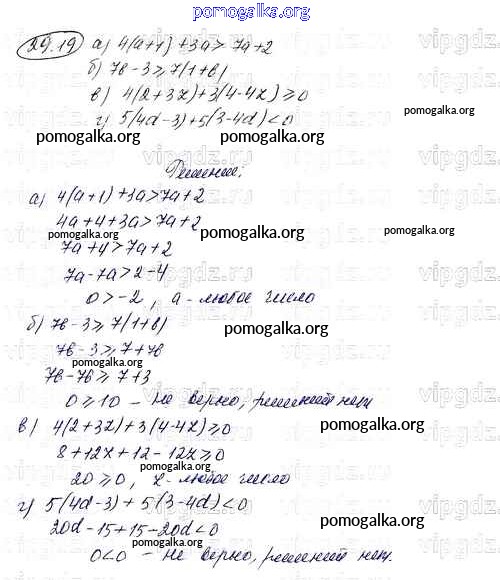 pomogalka.org
29.19 а) 4(a+1)+3a>7a+2
б) 7в-3⩾7(1+в)
в) 4(2+3z)+3(4-4z)⩾0
г) 5(4d-3)+5(3-4d)<0
pomogalka.org pomogalka.org
Решение:
а) 4(a+1)+3a>7a+2
4a+4+3a>7a+2
pomogalka.org pomogalka.org pomogalka.org
7a+4>7a+2
7a-7a>2-4
0>-2, a-любое число
б) 7в-3⩾7(1+в)
pomogalka.org
7в-3⩾7+7в
pomogalka.org
7в-7в⩾7+3
0⩾10 - не верно, решений нет
в) 4(2+3z)+3(4-4z)⩾0
pomogalka.org
8+12z+12-12z⩾0
pomogalka.org
20⩾0, z-любое число
г) 5(4d-3)+5(3-4d)<0
pomogalka.org
20d-15+15-20d<0
0<0 - не верно, решений нет.
pomogalka.org pomogalka.org